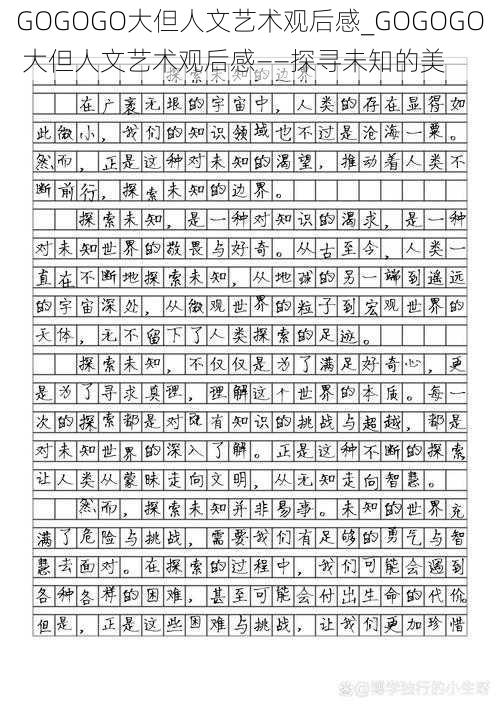 GOGOGO大但人文艺术观后感_GOGOGO
大但人文艺术观后感——探寻未知的美
探索未知的边界
在广袤无垠的宇宙中，人类的存在显得如
此微小，我们的知识领域也不过是沧海一粟。
然而，正是这种对未知的渴望，推动着人类不
断前行，探索未知的边界。
探索未知，是一种对知识的渴求，是一种
对未知世界的敬畏与好奇。从古至今，人类一
直在不断地探索未知，从地球的另一端到遥远
的宇宙深处，从微观世界的粒子到宏观世界的
天体，无不留下了人类探索的足迹。
探索未知，不仅仅是为了满足好奇心，更
是为了寻求真理，理解这个世界的本质。每一
次的探索都是对既有知识的挑战与超越，都是
对未知世界的深入了解。正是这种不断的探索
让人类从蒙昧走向文明，从无知走向智慧。
然而，探索未知并非易事。未知的世界充
满了危险与挑战，需要我们有足够的勇气与智
慧去面对。在探索的过程中，我们可能会遇到
各种各样的困难，甚至可能会付出生命的代价。
但是，正是这些困难与挑战，让我们更加珍惜
@博学独行的小生呀